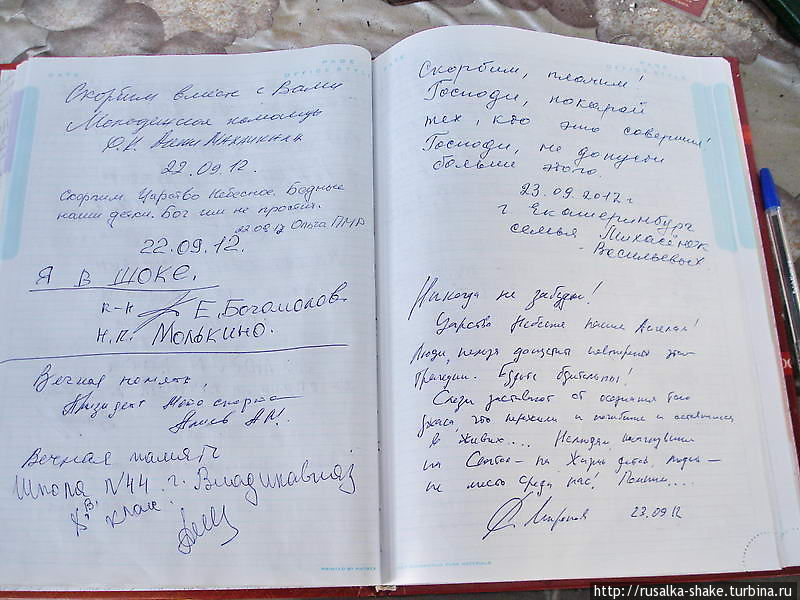 Скорбим вместе с Вами
Молодёжная команда
22.09.12.
Скорбим. Царство Небесное. Бедные
наши детки. Бог им не простит.
22.09.12 Ольга ПМР
22.09.12.
Я В ШОКЕ.
К-Н Е. Богомолов.
Н.П. Молькино.
Вечная память,
Президент Мото спорта
Вечная память
Школа N44 г. Владикавказ
X "В" класс.
Скорбим, плачим!
Господи, покарай
тех, кто это совершил!
Господи, не допусти
больше этого.
23.09.2012 г
г Екатеринбург
семья Михасёнок
Васильевых.
Никогда не забудем!
Царство Небесное нашим Ангелам!
Люди, нельзя допустить повторения этой
трагедии. Будьте бдительны!
Слезы от осознания того
ужаса, что пережили и погибшие и оставшиеся
в живых.... Нелюди,
на Святое - на Жизнь детей, людей -
не место среди нас! Помним....
23.09.12
PAGE
OFFICE STYLE
DATE
PAGE
OFFICE STYLE
© http://rusalka-shake.turbina.ru/